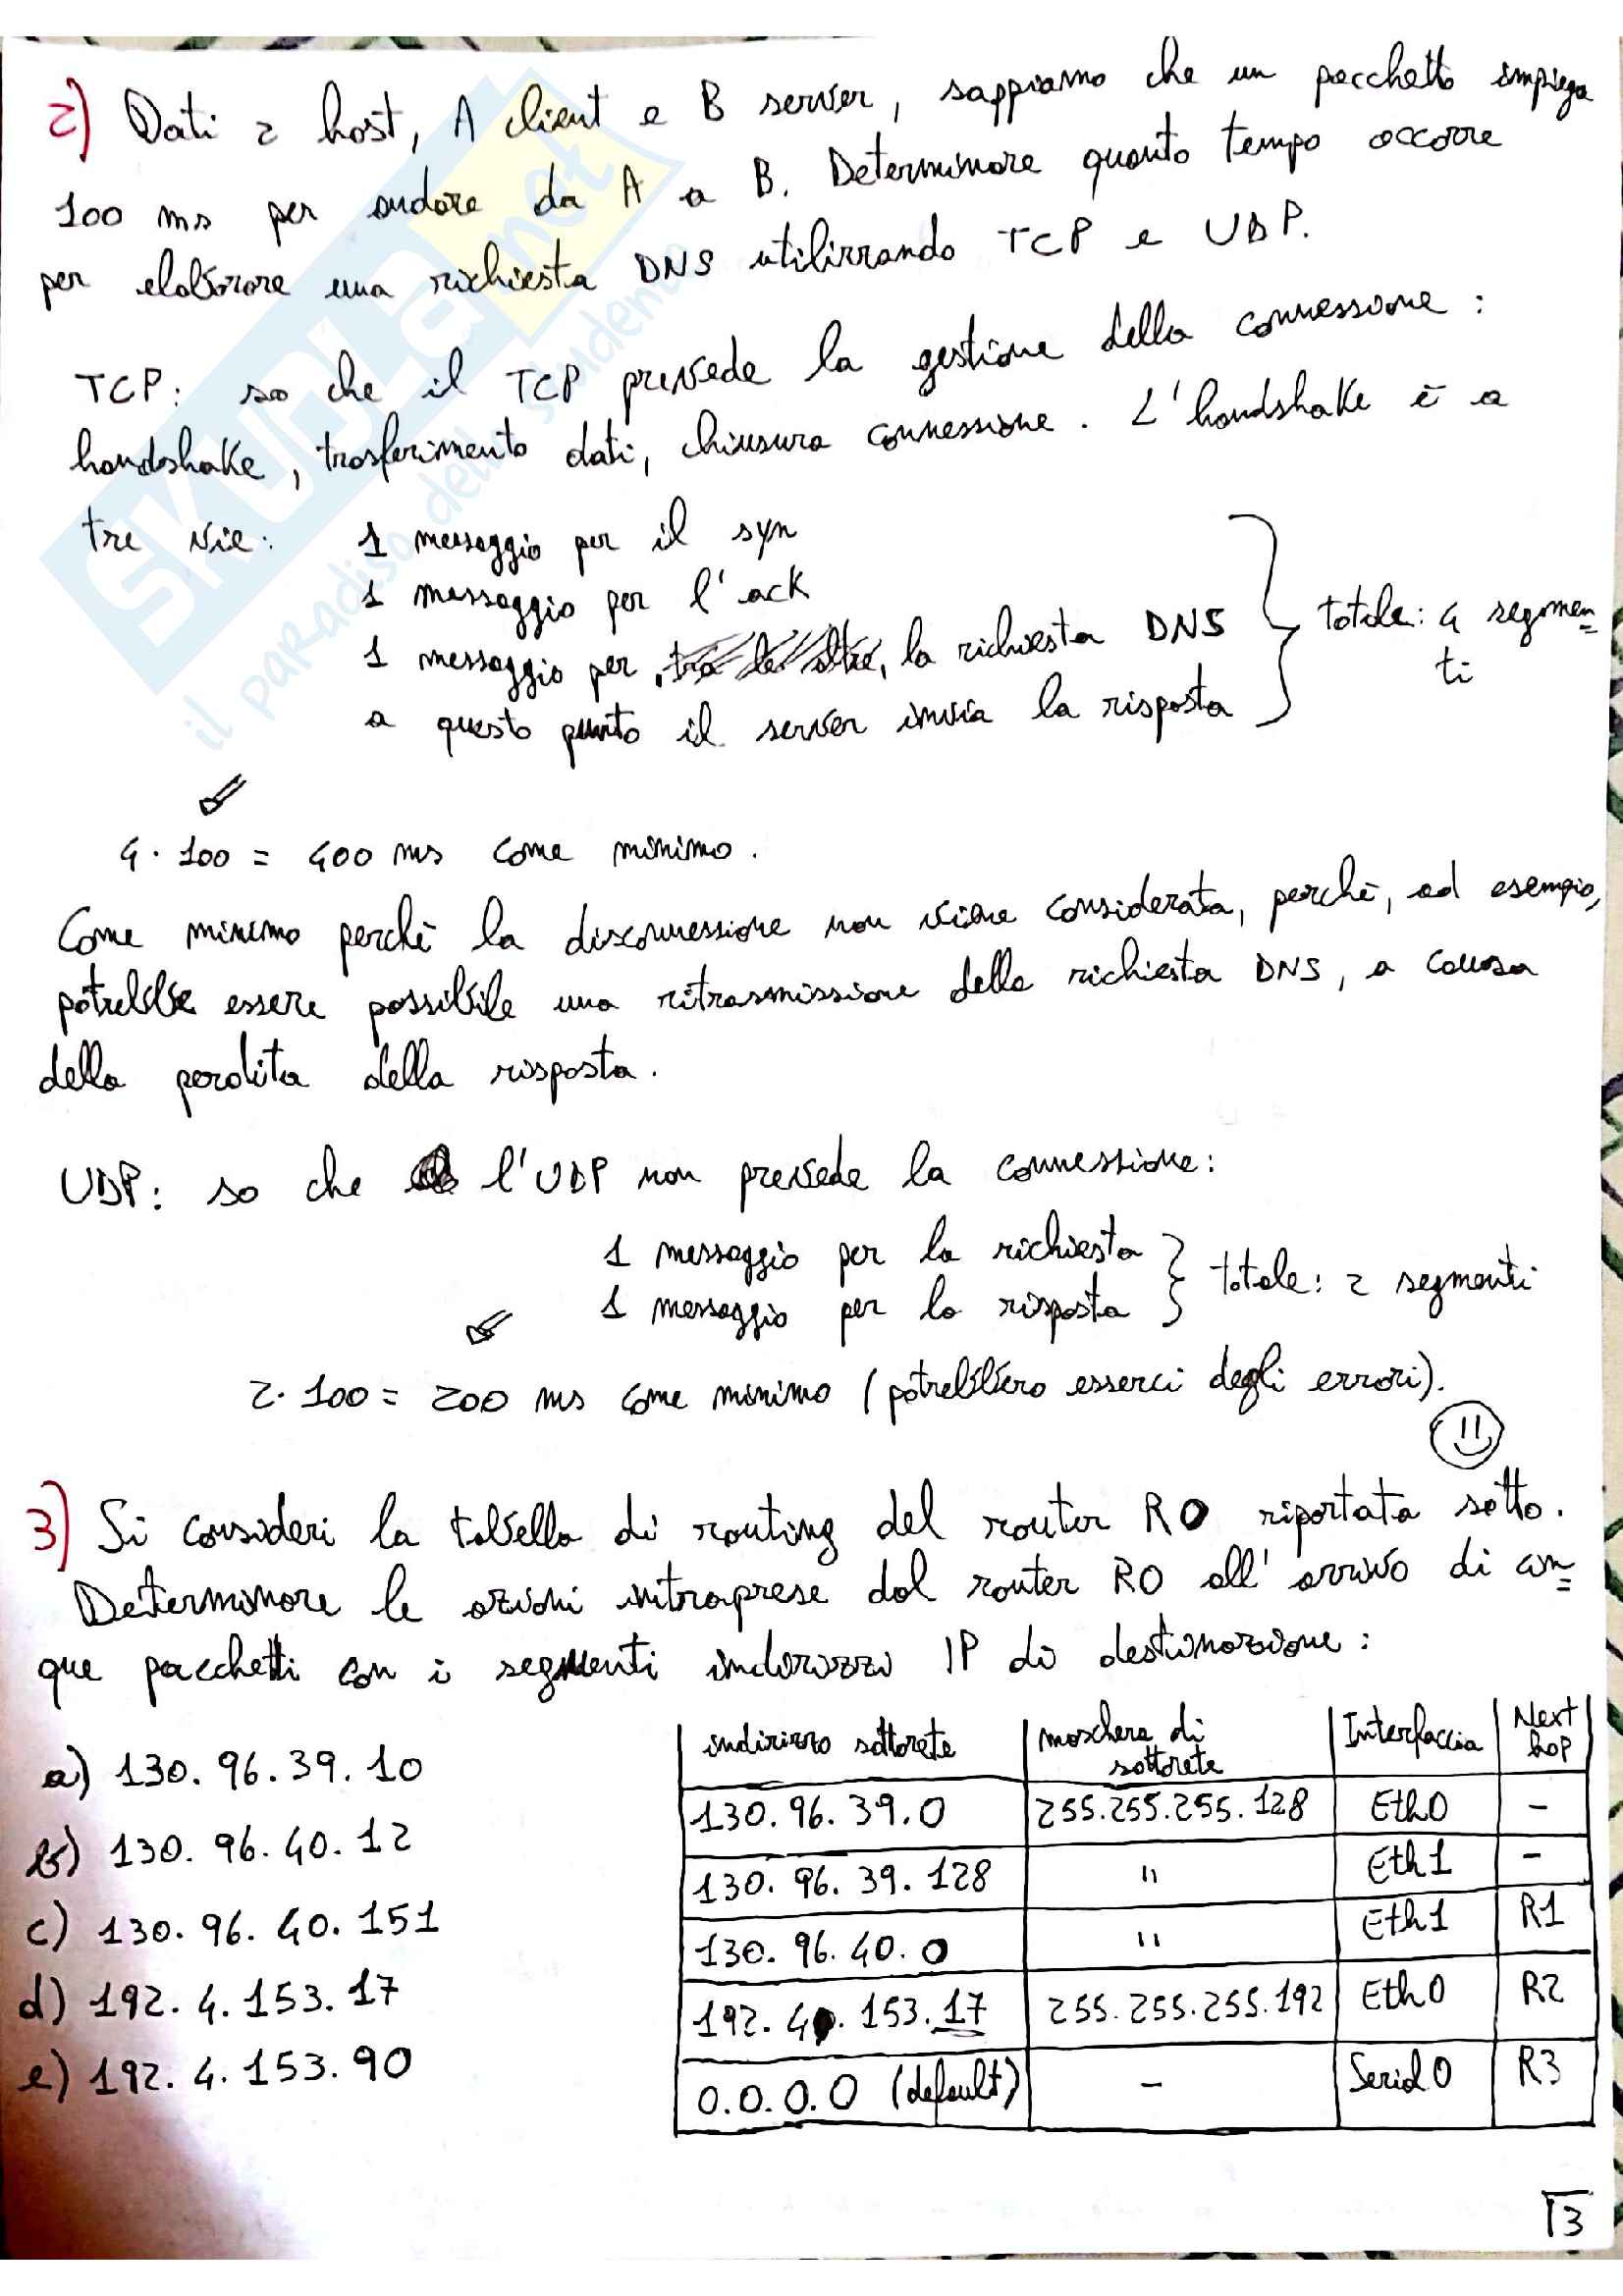 2) Dati 2 host, A client e B server, sappiamo che un pacchetto impiega
100 ms per andare da A a B. Determinare quanto tempo occorre
per elaborare una richiesta DNS utilizzando TCP e UDP.
TCP: so che il TCP prevede la gestione della connessione:
handshake, trasferimento dati, chiusura connessione. L'handshake è a
tre vie:
1 messaggio per il syn
1 messaggio per l'ack
1 messaggio per la richiesta DNS
a questo punto il server invia la risposta
totale: 4 segmen=
ti
4 · 100 = 400 ms come minimo.
Come minimo perchè la disconnessione non viene considerata, perchè, ad esempio,
potrebbe essere possibile una ritrasmissione della richiesta DNS, a causa
della perdita della risposta.
UDP: so che l'UDP non prevede la connessione:
1 messaggio per la richiesta
1 messaggio per la risposta
totale: 2 segmenti
2 · 100 = 200 ms come minimo (potrebbero esserci degli errori).
3) Si consideri la tabella di routing del router R0 riportata sotto.
Determinare le azioni intraprese dal router R0 all'arrivo di cin=
que pacchetti con i segmenti indirizzi IP di destinazione:
a) 130. 96. 39. 10
b) 130. 96. 40. 12
c) 130. 96. 40. 151
d) 192. 4. 153. 17
e) 192. 4. 153. 90
indirizzo sottorete | maschera di sottorete | Interfaccia | Next hop
130. 96. 39. 0 | 255.255.255. 128 | Eth0 | -
130. 96. 39. 128 | " | Eth1 | -
130. 96. 40. 0 | " | Eth1 | R1
192. 4. 153. 17 | 255.255.255.192 | Eth0 | R2
0.0.0.0 (default) | - | Serial 0 | R3
13
SKUOLA.net
il paradiso dello studente